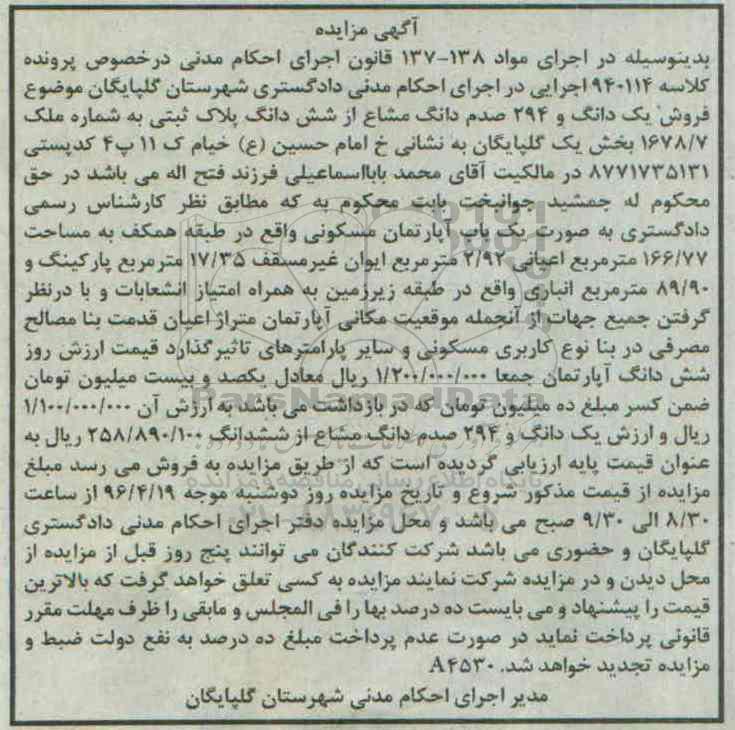 آگهی مزایده
بدینوسیله در اجرای مواد ۱۳۸-۱۳۷ قانون اجرای احکام مدنی درخصوص پرونده
کلاسه ۹۴۰۱۱۴ اجرایی در اجرای احکام مدنی دادگستری شهرستان گلپایگان موضوع
فروش یک دانگ و ۲۹۴ صدم دانگ مشاع از شش دانگ پلاک ثبتی به شماره ملک
۱۶۷۸/۷ بخش یک گلپایگان به نشانی خ امام حسین (ع) خیام ک ۱۱ پ۴ کدپستی
۸۷۷۱۷۳۵۱۳۱ در مالکیت آقای محمد بابااسماعیلی فرزند فتح اله می باشد در حق
محکوم له جمشید جوانبخت بابت محکوم به که مطابق نظر کارشناس رسمی
دادگستری به صورت یک باب آپارتمان مسکونی واقع در طبقه همکف به مساحت
۱۶۶/۷۷ مترمربع اعیانی ۲/۹۲ مترمربع ایوان غیرمسقف ۱۷/۳۵ مترمربع پارکینگ و
۸۹/۹۰ مترمربع انباری واقع در طبقه زیرزمین به همراه امتیاز انشعابات و با درنظر
گرفتن جمیع جهات از آنجمله موقعیت مکانی آپارتمان متراژ اعیان قدمت بنا مصالح
مصرفی در بنا نوع کاربری مسکونی و سایر پارامترهای تاثیرگذارد قیمت ارزش روز
شش دانگ آپارتمان جمعا ۱/۲۰۰/۰۰۰/۰۰۰ ریال معادل یکصد و بیست میلیون تومان
ضمن کسر مبلغ ده میلیون تومان که در بازداشت می باشد به ارزش آن ۱/۱۰۰/۰۰۰/۰۰۰
ریال و ارزش یک دانگ و ۲۹۴ صدم دانگ مشاع از ششدانگ ۲۵۸/۸۹۰/۱۰۰ ریال به
عنوان قیمت پایه ارزیابی گردیده است که از طریق مزایده به فروش می رسد مبلغ
مزایده از قیمت مذکور شروع و تاریخ مزایده روز دوشنبه موجه ۹۶/۴/۱۹ از ساعت
۸/۳۰ الی ۹/۳۰ صبح می باشد و محل مزایده دفتر اجرای احکام مدنی دادگستری
گلپایگان و حضوری می باشد شرکت کنندگان می توانند پنج روز قبل از مزایده از
محل دیدن و در مزایده شرکت نمایند مزایده به کسی تعلق خواهد گرفت که بالاترین
قیمت را پیشنهاد و می بایست ده درصد بها را فی المجلس و مابقی را ظرف مهلت مقرر
قانونی پرداخت نماید در صورت عدم پرداخت مبلغ ده درصد به نفع دولت ضبط و
مزایده تجدید خواهد شد. A۴۵۳۰
مدیر اجرای احکام مدنی شهرستان گلپایگان
ParsNamadData
پایگاه اطلاع رسانی مناقصه و مزایده